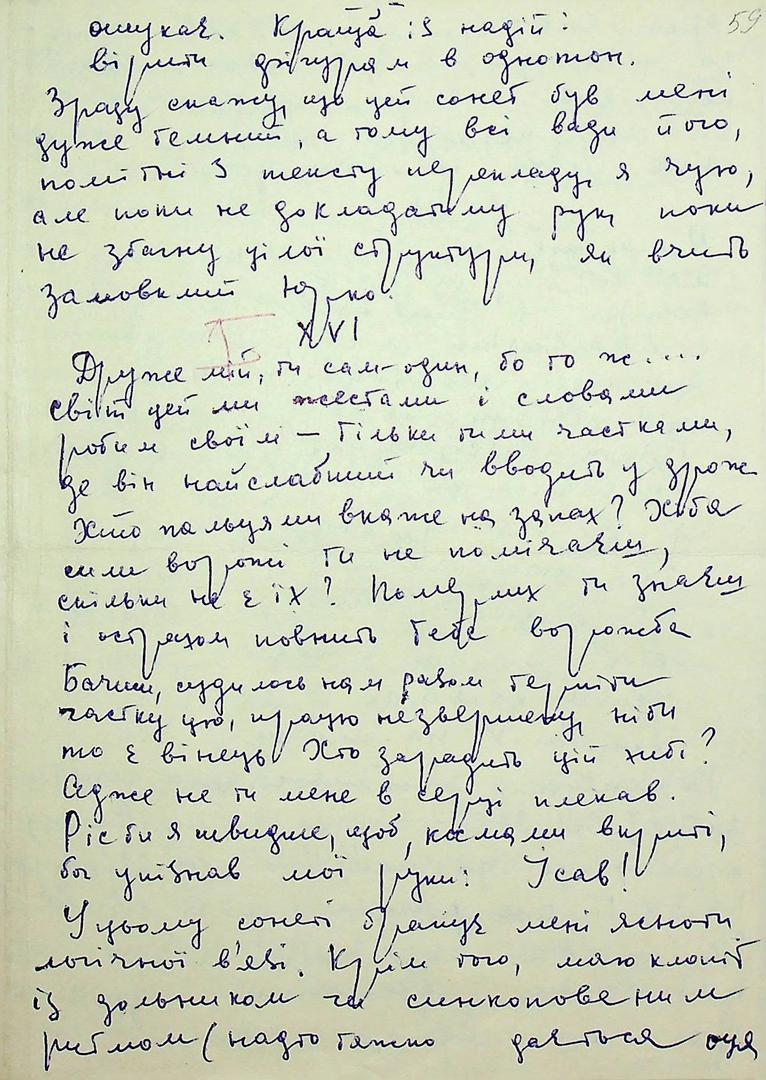 59
ошукає. Краща із надій:
вірити фігурам в однотон.
Зразу скажу, що цей сонет був мені
дуже темний, а тому всі вади його,
помітні з тексту перекладу, я чую,
але поки не докладатиму рук, поки
не збагну цілої структури, як вчить
замовкий Юрко.
XVI
Друже мій, ти сам-один, бо то ж....
світ цей ми жестами і словами
робим своїм — тільки тими частками,
де він найслабший чи вводить у дрож
Хто пальцями вкаже на запах? Хіба
сили ворожі ти не помічаєш,
скільки не є їх? Померлих ти знаєш
і острахом повнить тебе ворожба
Бачиш, судилось нам разом терпіти
частку цю, працю незвершену, ніби
то є вінець Хто зарадить цій хибі?
Адже не ти мене в серці плекав.
Ріс би я швидше, щоб, космами вкриті,
бог упізнав мої руки: Ісав!
У цьому сонеті бракує мені ясноти
логічної в'язі. Крім того, маю клопіт
із дольником чи синкопованим
ритмом (надто тяжко дається оця